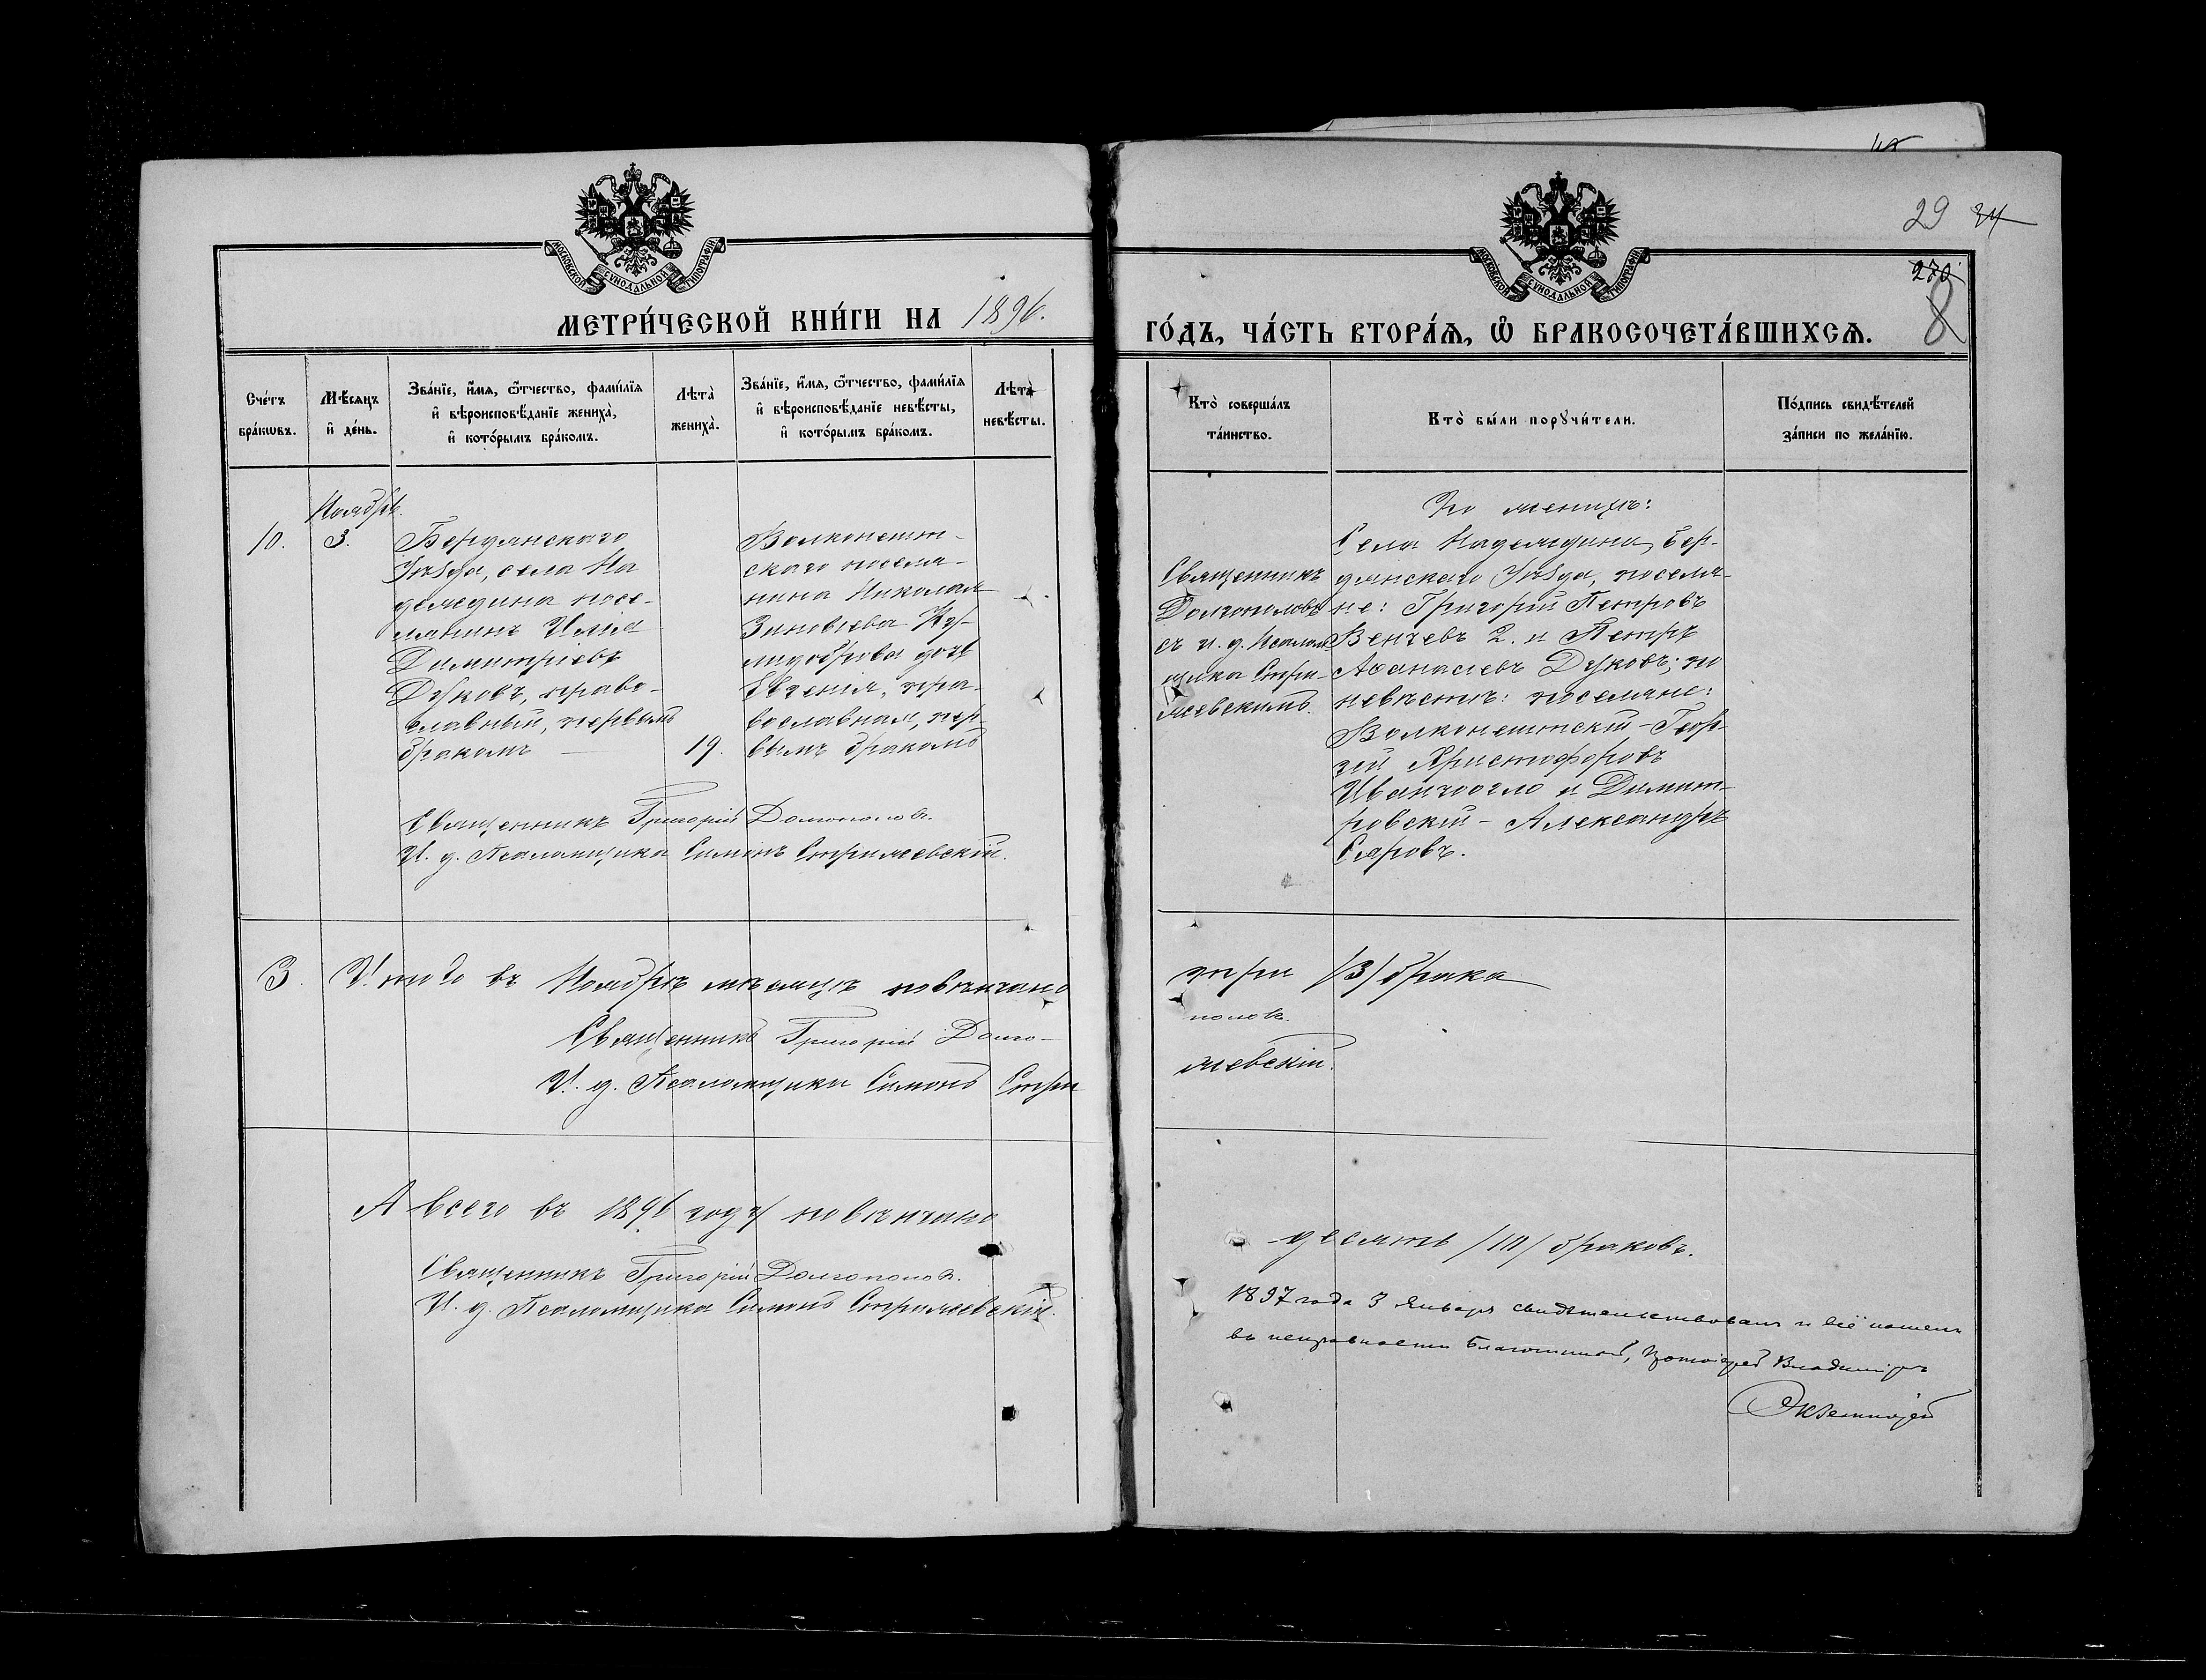 29 24
270
8
МОСКОВСКОЙ СѴНОДАЛЬНОЙ ТИПОГРАФІИ
МОСКОВСКОЙ СѴНОДАЛЬНОЙ ТИПОГРАФІИ
МЕТРИ́ЧЕСКОЙ КНИ́ГИ НА 1896.
ГО́ДЪ, ЧА́СТЬ ВТОРА́Ѧ, Ѽ БРАКОСОЧЕТА́ВШИХСѦ.
Сче́тъ
бра́кѡвъ.
Мѣ́сѧцъ
и҆ де́нь.
Зва́нїе, и҆́мѧ, ѻ҆́тчество, фами́лїѧ
и҆ вѣроисповѣ́данїе жениха̀,
и҆ кото́рымъ бра́комъ.
Лѣта̀
жениха̀.
Зва́нїе, и҆́мѧ, ѻ҆́тчество, фами́лїѧ
и҆ вѣроисповѣ́данїе невѣ́сты,
и҆ кото́рымъ бра́комъ.
Лѣта̀
невѣ́сты.
Кто̀ соверша́лъ
та́инство.
Кто̀ бы́ли порꙋчи́тели.
По́дпись свидѣ́телей
за́писи по жела́нїю.
10.
Ноябрь.
3.
Бердянскаго
Уѣзда, села На
деждина посе-
лянинъ Илія
Димитріевъ
Дуковъ, право-
славный, первымъ
бракомъ —
19.
Волконешт-
скаго поселя-
нина Николая
Зиновіева
дочь
Евгенія, пра-
вославная, пер-
вымъ бракомъ
Священникъ
Долгополовъ
съ и. д. Псалом-
щика Стри-
жевскимъ.
По женихѣ:
Села Надеждина, Бер-
дянскаго Уѣзда, поселя-
не: Григорій Петровъ
Венчевъ 2. и Петръ
Аѳанасіевъ Дуковъ; по
невѣстѣ: поселяне:
Волконештскій – Геор-
гій Христофоровъ
Иванчогло и Димит-
ровскій – Александръ
Сяровъ.
Священникъ Григорій Долгополовъ.
И. д. Псаломщика Симонъ Стрижевскій.
3. Итого въ Ноябрѣ мѣсяцѣ повѣнчано три /3/ брака
Священникъ Григорій Долгополовъ.
И. д. Псаломщика Симонъ Стрижевскій.
А всего въ 1896 году повѣнчано десять /10/ браковъ.
Священникъ Григорій Долгополовъ.
И. д. Псаломщика Симонъ Стрижевскій.
1897 года 3 Января свидѣтельствовалъ и всё нашелъ
въ исправности Благочинный, Протоіерей Владиміръ